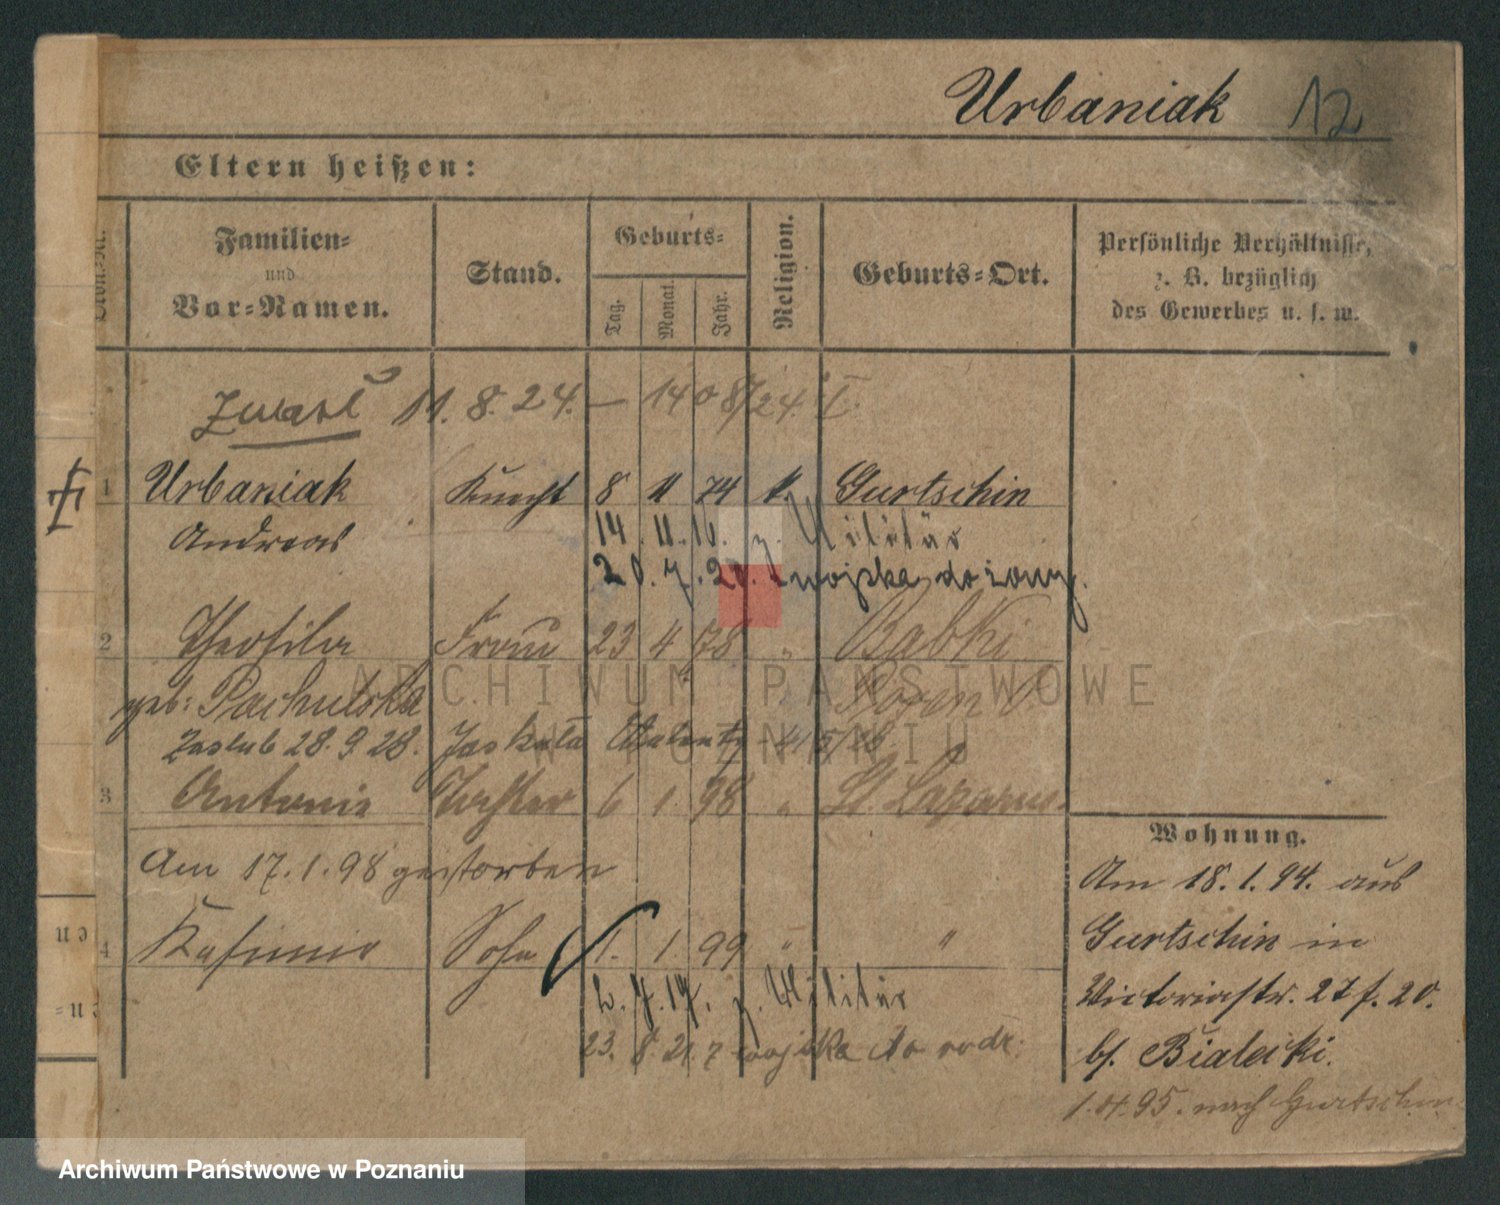 Urbaniak 12
Eltern heißen:
Familien-
und
Vor-Namen.
Stand.
Geburts-
Tag.
Monat.
Jahr.
Religion.
Geburts-Ort.
Persönliche Verhältnisse,
z. B. bezüglich
des Gewerbes u. s. w.
Zmarł 11. 8. 24. — 14 8/24 I.
1 Urbaniak Knecht 8 11 74 k. Gurtschin
Andreas 14. 11. 16. z. Militär
20. 7. 20. z wojska do żony.
2 Theofila Frau 23 4 78 " Babki
geb: Pachulska Posen O.
Zaślub 28. 9 28. Jaskuła Walenty
3 Antonie Tochter 6 1. 98 " St. Lazarus
Am 17. 1. 98 gestorben
4 Kasimir Sohn 1. 1. 99 " "
2. 7. 17. z. Militär
23. 8. 21. z wojska do rodz.
Wohnung.
Am 18. 1. 94. aus
Gurtschin in
Victoriastr. 27 f. 20.
bf. Bialecki.
1. 4. 95. nach Gurtschin
ARCHIWUM PAŃSTWOWE
W POZNANIU
Archiwum Państwowe w Poznaniu